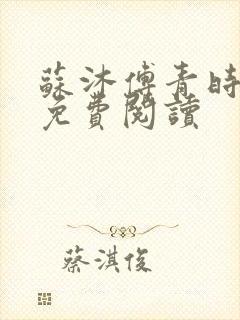 蘇沐傅青時
免費閱讀
蔡淇俊